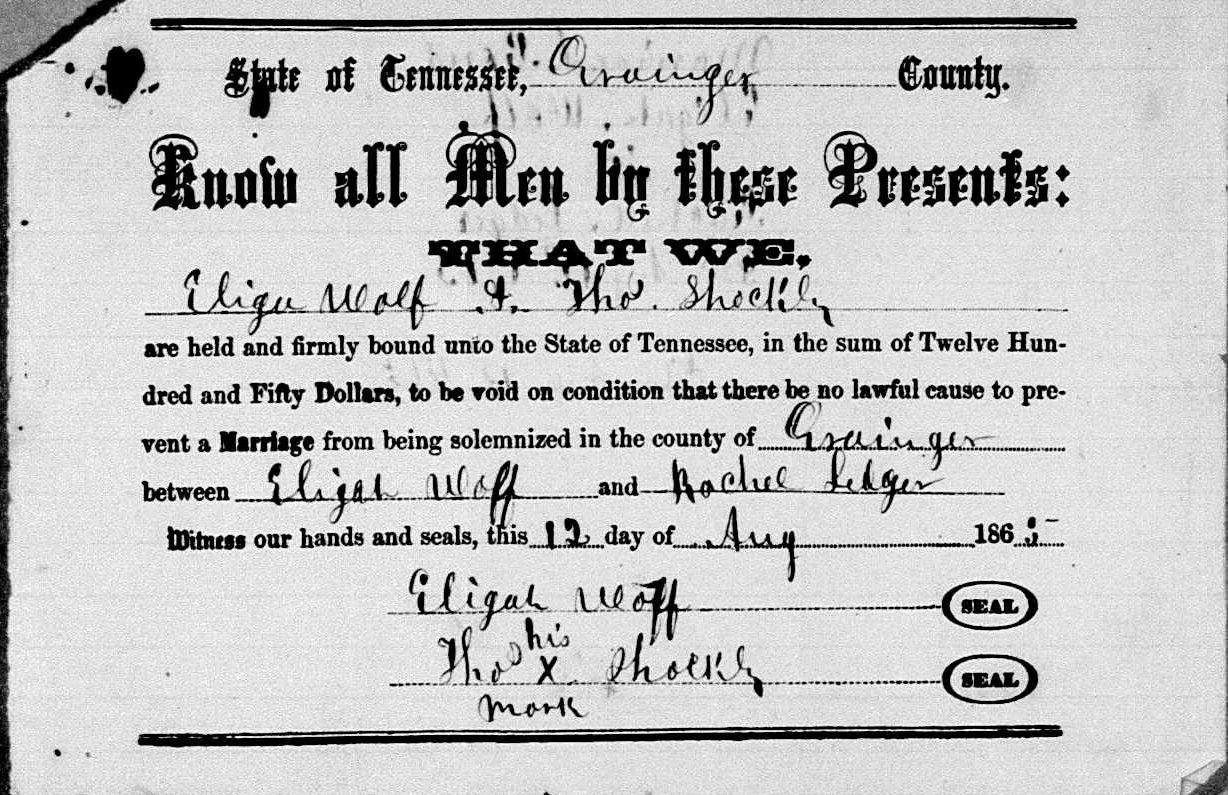 State of Tennessee, Grainger County.
Know all Men by these Presents:
THAT WE,
Eliga Wolf & Tho. Shockly
are held and firmly bound unto the State of Tennessee, in the sum of Twelve Hun-
dred and Fifty Dollars, to be void on condition that there be no lawful cause to pre-
vent a Marriage from being solemnized in the county of Grainger
between Elijah Wolf and Rachel Ledger
Witness our hands and seals, this 12 day of Aug 1865
Eligah Wolf SEAL
his
Tho X Shockly SEAL
mark